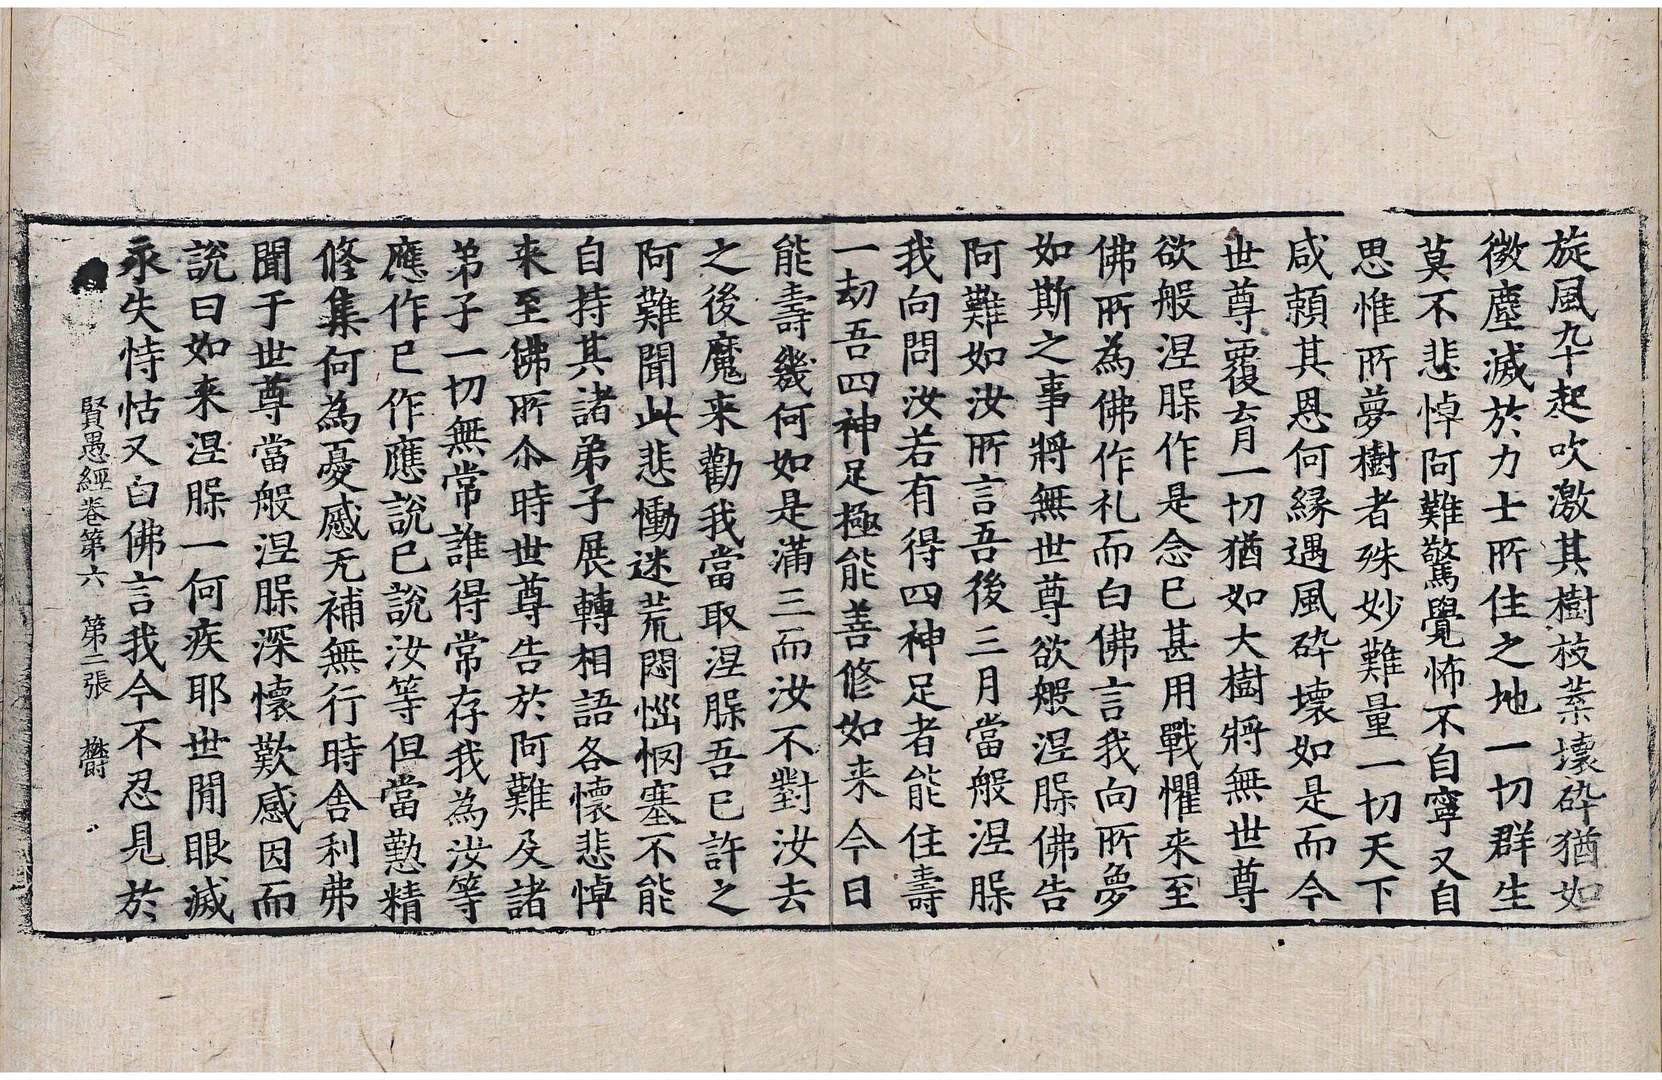 旋風卒起吹激其樹枝葉壊碎猶如
微塵滅於力士所住之地一切群生
莫不悲悼阿難驚覺怖不自寧又自
思惟所夢樹者殊妙難量一切天下
咸頼其恩何縁遇風碎壊如是而今
世尊覆育一切猶如大樹將無世尊
欲般涅槃作是念已甚用戰懼来至
佛所為佛作礼而白佛言我向所夢
如斯之事將無世尊欲般涅槃佛告
阿難如汝所言吾後三月當般涅槃
我向問汝若有得四神足者能住壽
一劫吾四神足極能善修如来今日
能壽幾何如是滿三而汝不對汝去
之後魔来勸我當取涅槃吾已許之
阿難聞此悲慟迷荒悶惱惘塞不能
自持其諸弟子展轉相語各懷悲悼
来至佛所尒時世尊告於阿難及諸
弟子一切無常誰得常存我為汝等
應作已作應說已說汝等但當懃精
修集何為憂慼无補無行時舍利弗
聞于世尊當般涅槃深懷歎感因而
說曰如来涅槃一何疾耶世閒眼滅
永失恃怙又白佛言我今不忍見於
賢愚經卷第六　第二張　欝